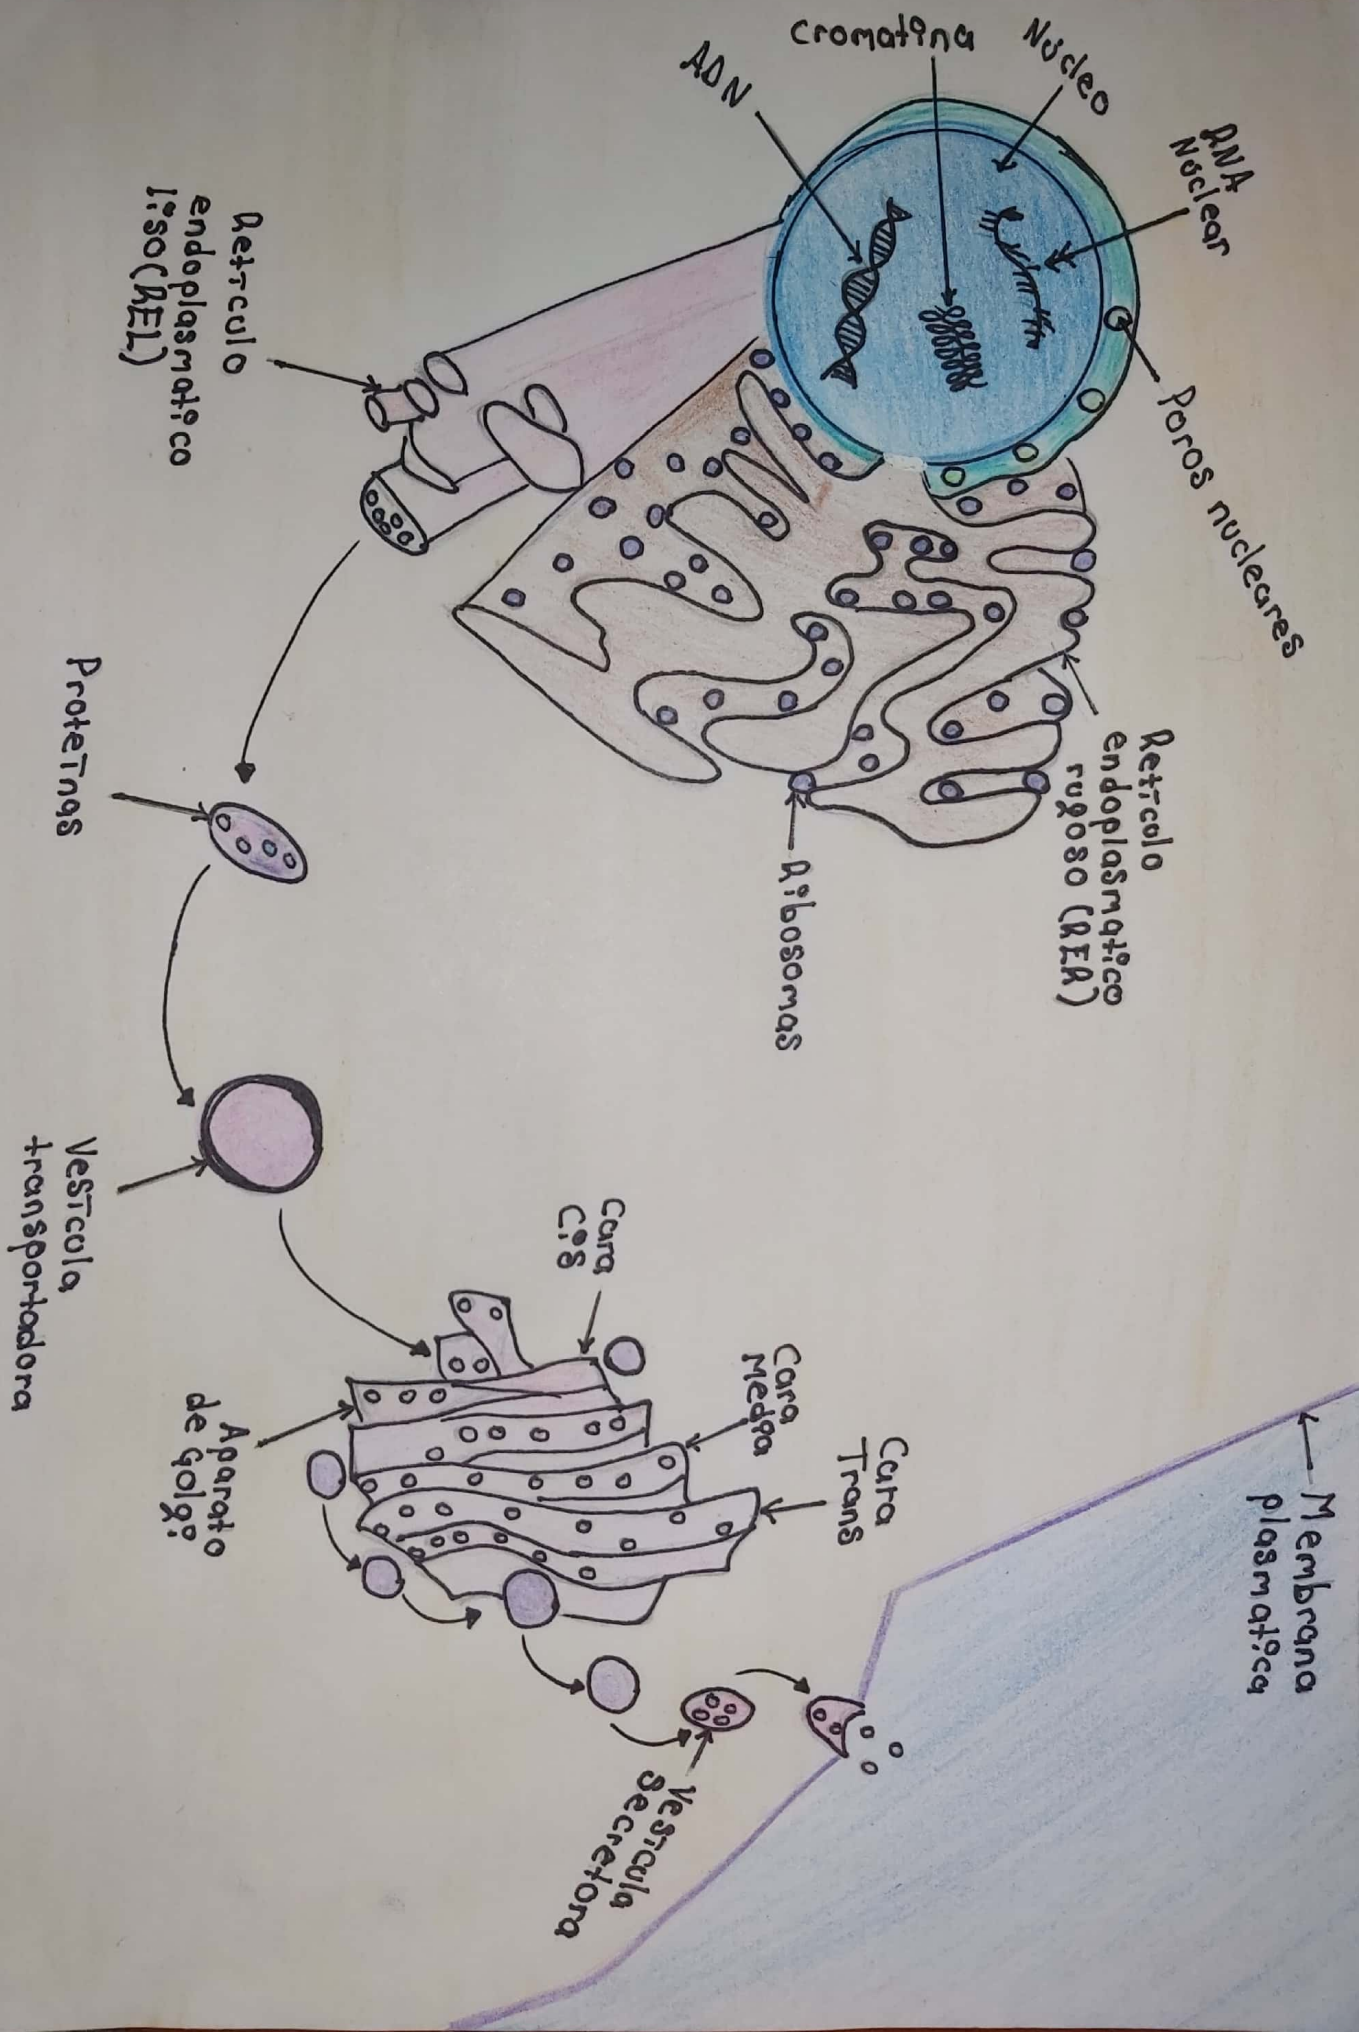 cromatina
Núcleo
ADN
RNA
Nuclear
Poros nucleares
Retículo
endoplasmatico
liso (REL)
Retículo
endoplasmatico
rugoso (RER)
Ribosomas
Proteínas
Vesícula
transportadora
Cara
Cis
Cara
Media
Cara
Trans
Aparato
de Golgi
Membrana
plasmatica
Vesícula
Secretora